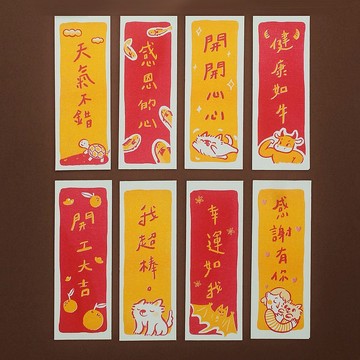 天氣不錯
感恩的心
開開心心
健康如牛
開工大吉
我超棒。
幸運如我
感謝有你